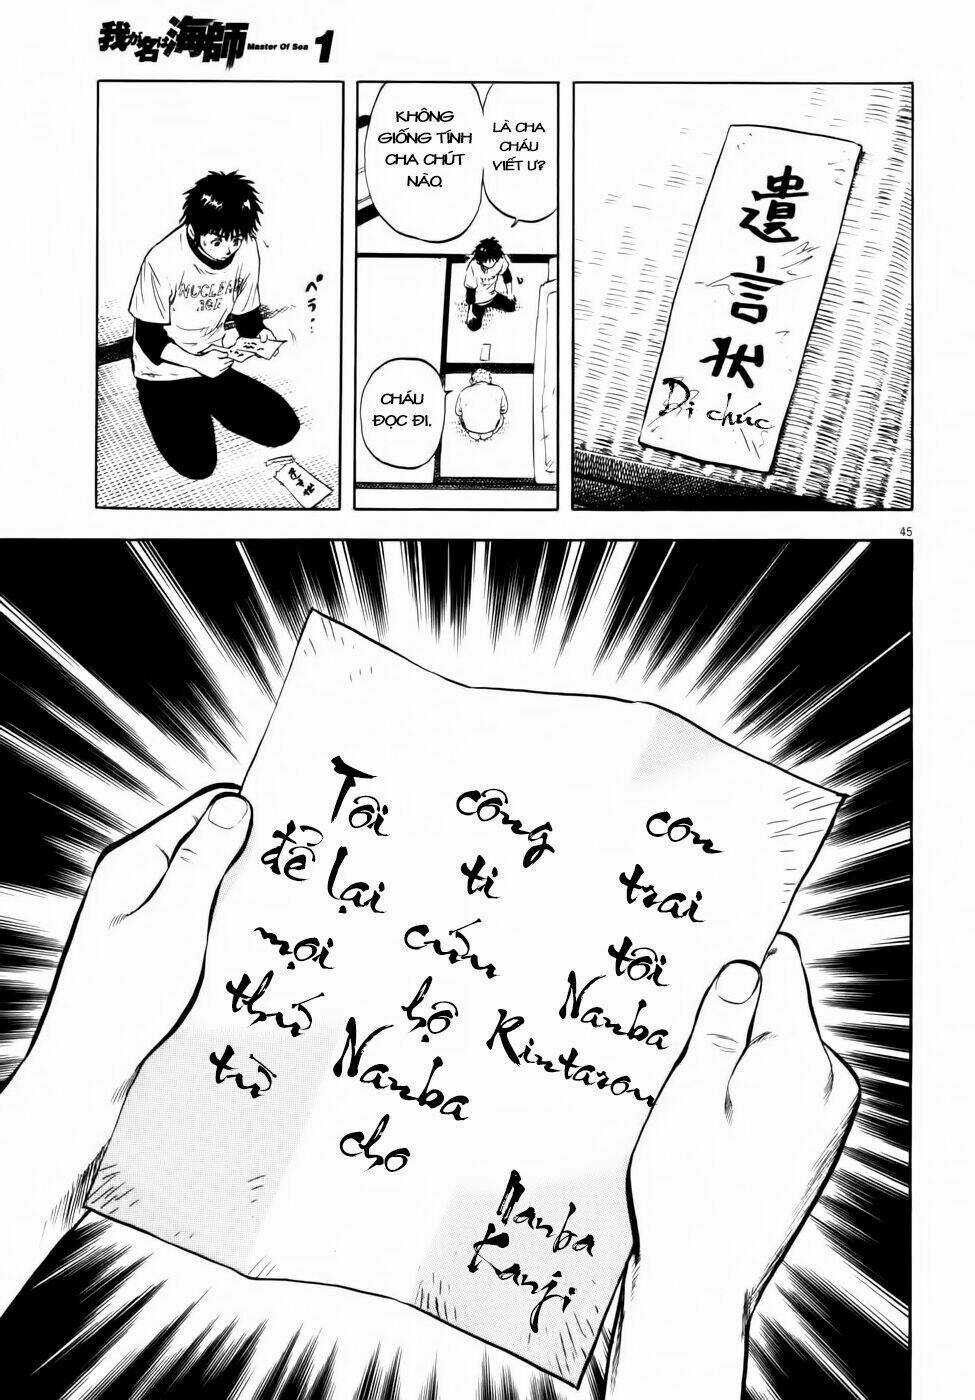 我が名は海師 Master Of Sea 1
遺言状
Di chúc
LÀ CHA
CHÁU
VIẾT Ư?
KHÔNG
GIỐNG TÍNH
CHA CHÚT
NÀO.
CHÁU
ĐỌC ĐI.
NUCLEAR
AGE
ペラ…
45
Tôi
để lại
mọi
thứ
từ
công
ti
cứu
hộ
Nanba
cho
con
trai
tôi
Nanba
Rintarou
Nanba
Kanji